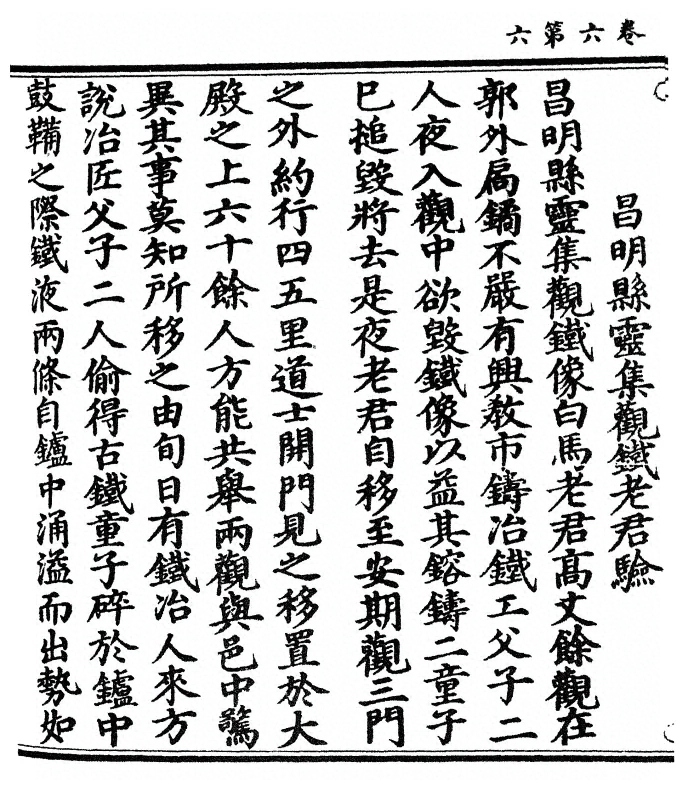 卷六第六
昌明縣靈集觀鐵老君驗
昌明縣靈集觀鐵像白馬老君高丈餘觀在
郭外扃鐍不嚴有興教市鑄冶鐵工父子二
人夜入觀中欲毀鐵像以益其鎔鑄二童子
巳槌毀將去是夜老君自移至安期觀三門
之外約行四五里道士開門見之移置於大
殿之上六十餘人方能共舉兩觀與邑中驚
異其事莫知所移之由旬日有鐵冶人來方
說冶匠父子二人偷得古鐵童子碎於鑪中
鼓鞴之際鐵液兩條自鑪中涌溢而出勢如